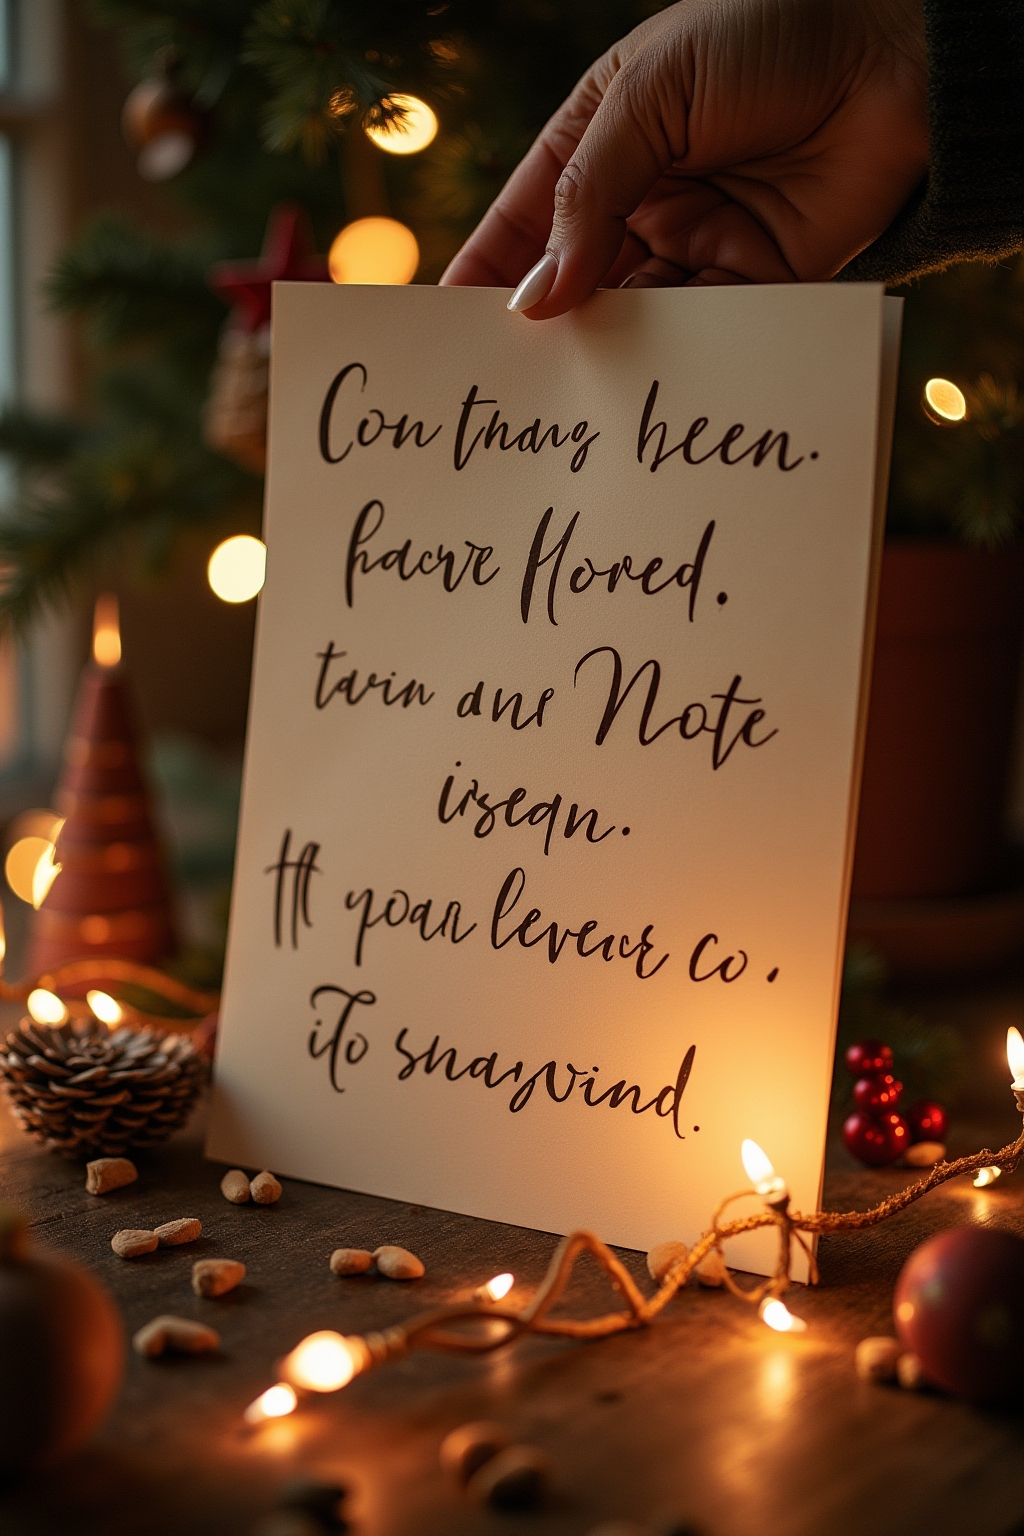 Con thang been.
hacve Hored.
tarin and Note
irseqn.
It yoan leveur co.
iTo snayvind.